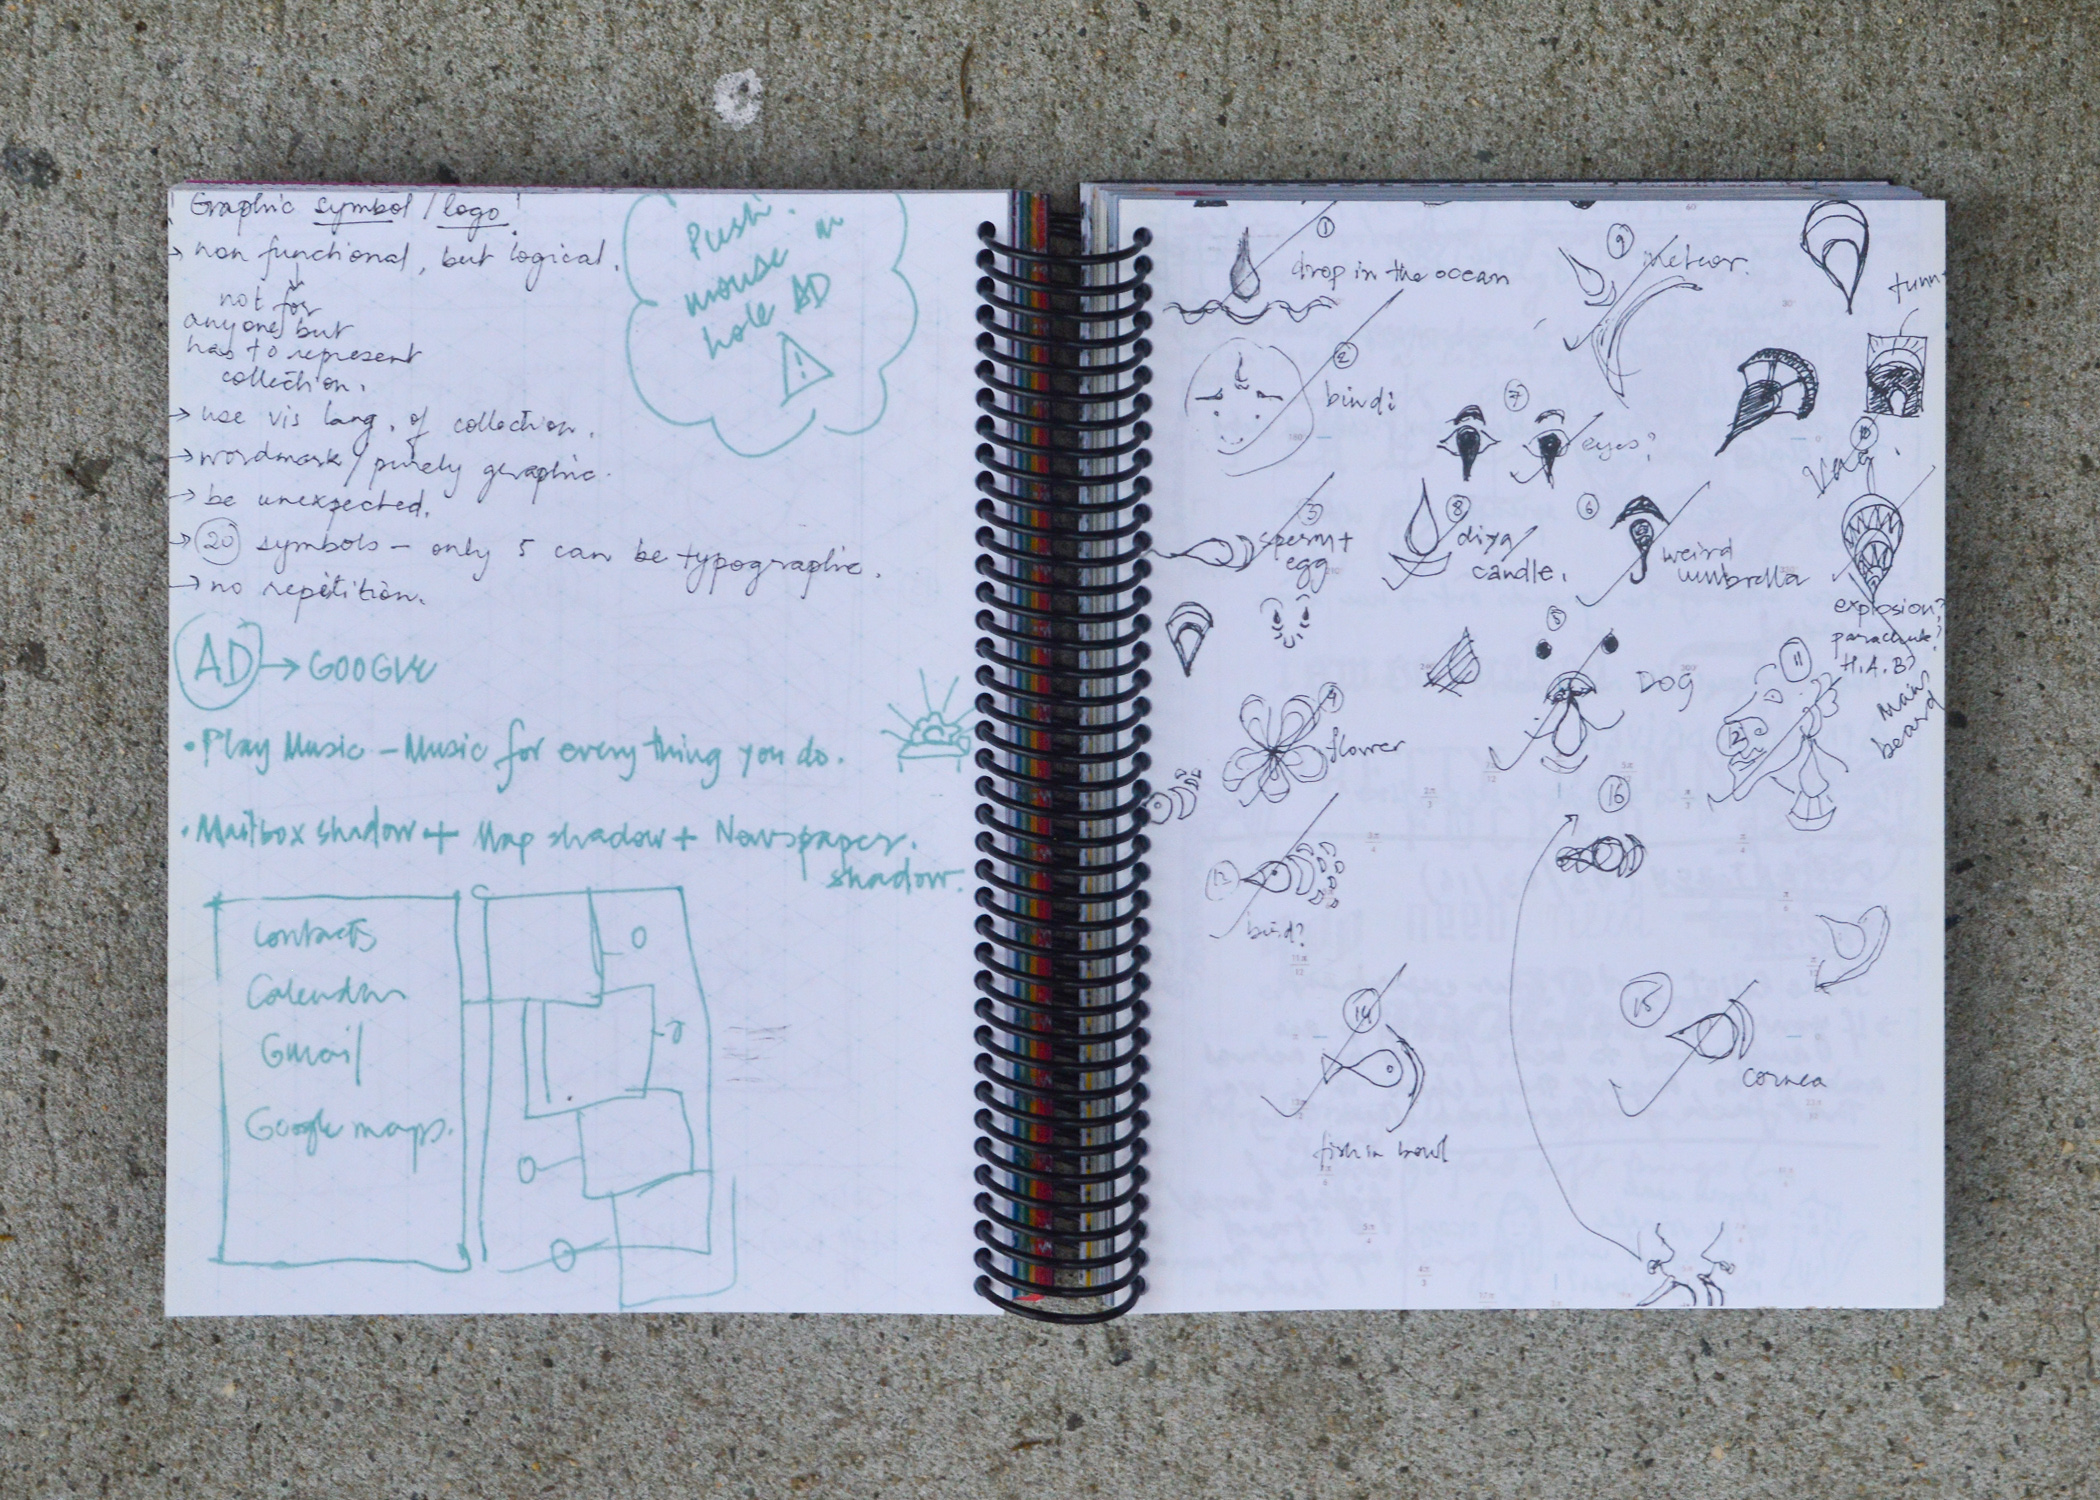 Graphic symbol / logo
→ non functional, but logical.
not for
anyone but
has to represent
collection.
→ use vis lang. of collection.
→ wordmark / purely graphic.
→ be unexpected.
→ 20 symbols – only 5 can be typographic.
→ no repitition.
Push
mouse in
hole AD
!
AD → GOOGLE
• Play Music – Music for everything you do.
• Mailbox shadow + Map shadow + Newspaper.
shadow.
Contacts
Calendar
Gmail
Google maps.
1
drop in the ocean
9
meteor.
2
bindi
7
eyes?
tunn
10
3
sperm +
egg
8
diya
candle.
6
weird
umbrella
explosion?
parachute?
H.A.B?
4
flower
5
DOG
11
12
mans
beard
13
bird?
16
14
fish in bowl
15
cornea